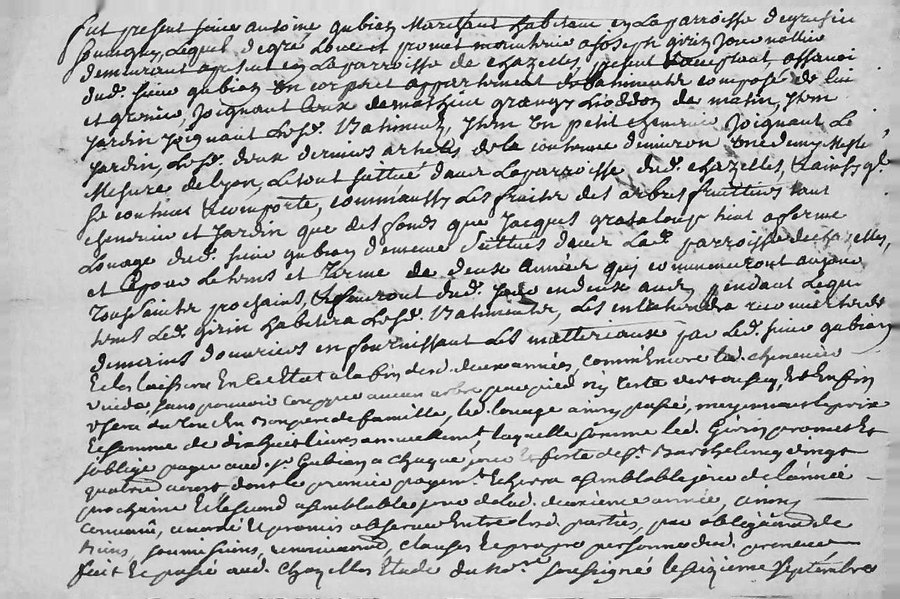 fut present sieur antoine gubian Marchant habitant en La parroisse de
Lequel de gré Loue et promet maintenir a Joseph girin Journallier
demeurant a present en La parroisse de chazelles, present & acceptant, assavoir
dud. sieur gubian un corps et appartement de batimentz composé de
et grenier, Joignant aux de mathieu grangy de matin, Item
Jardin Joignant Lesd. Batiment, Item un petit chenevier Joignant Le
Jardin, Lesd. deux derniers articles de la contenue denviron une demy
Mesure de lyon, Le tout sittué dans La parroisse dud. chazelles, & ainsy ql.
se contient & comporte, comm'aussy Les fruitz des arbres fruittiers tant
chenevier et Jardin que des fonds que Jacques grataloup tient afferme
Louage dud. sieur gubian de meme sittués dans Lad. parroisse de chazelles,
et a pour Le tems et terme de deux Années quy commenceront au jour
toussaintz prochain, & finiront dud. Jour en deux ans, pendant Lequel
tems Led. girin habitera Lesd. Batimentz, Les entretiendra
d'ouvriers en fournissant Les matteriaux par Led. sieur gubian
Et les laissera En bel Etat a la fin desd. deux années, comm'Encore led. chenevier
vuide, sans pouvoir coupper aucun arbre par pied ny teste Et Enfin
usera du tout En bon pere de famille, led. louage ainsy passé, moyennant le prix
Et somme de dixhuit livres annuellement, laquelle somme led. Girin promet Et
s'oblige payer aud. sr. Gubian a chaque jour Et feste de st. Barthelemy vingt
quatre aoust dont le premier payemt. Echerra a semblable jour de l'année
prochaine Et le second a semblable jour de lad. deuxieme année, ainsy
convenu, accordé Et promis observer Entre lesd. parties, par oblig'aõn de
biens, soumissions, renonciaõns, clauses Et propre personne dud. preneur
fait Et passé aud. Chazelles Etude du nore. soussigné le sizieme Septembre